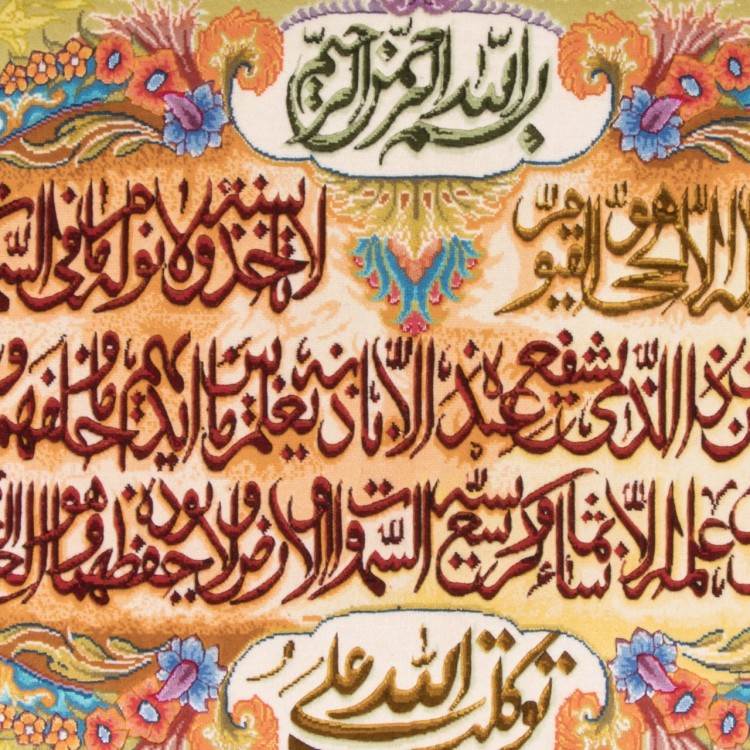 بسم الله الرحمن الرحيم
له الا هو الحي القيوم لا تاخذه سنة ولا نوم له ما في
ذا الذي يشفع عنده الا باذنه يعلم ما بين ايديهم وما خلفهم
علمه الا بما شاء وسع كرسيه السموات والارض ولا يوده حفظهما وهو
توكلت علي الله